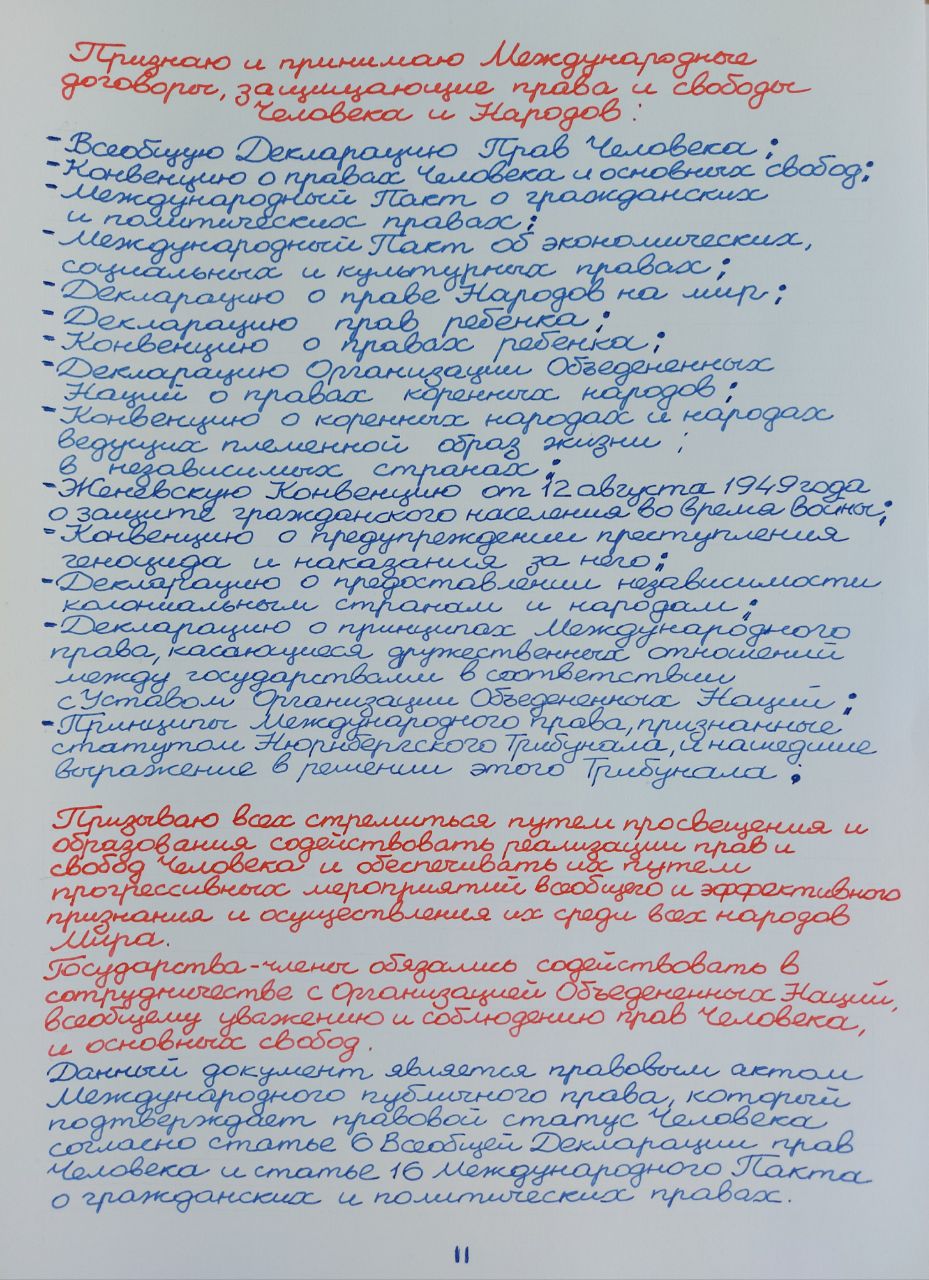 Признаю и принимаю Международные
договоры, защищающие права и свободы
Человека и Народов:
- Всеобщую Декларацию Прав Человека;
- Конвенцию о правах Человека и основных свобод;
- Международный Пакт о гражданских
и политических правах;
- Международный Пакт об экономических,
социальных и культурных правах;
- Декларацию о праве Народов на мир;
- Декларацию прав ребенка;
- Конвенцию о правах ребенка;
- Декларацию Организации Объедененных
Наций о правах коренных народов;
- Конвенцию о коренных народах и народах
ведущих племенной образ жизни ;
в независимых странах;
- Женевскую Конвенцию от 12 августа 1949 года
о защите гражданского населения во время войны;
- Конвенцию о предупреждении преступления
геноцида и наказания за него;
- Декларацию о предоставлении независимости
колониальным странам и народам;
- Декларацию о принципах Международного
права, касающиеся дружественных отношений
между государствами в соответствии
с Уставом Организации Объедененных Наций;
- Принципы Международного права, признанные
статутом Нюрнбергского Трибунала, и нашедшие
выражение в решении этого Трибунала;
Призываю всех стремиться путем просвещения и
образования содействовать реализации прав и
свобод Человека и обеспечивать их путем
прогрессивных мероприятий всеобщего и эффективного
признания и осуществления их среди всех народов
Мира.
Государства-члены обязались содействовать в
сотрудничестве с Организацией Объедененных Наций,
всеобщему уважению и соблюдению прав Человека,
и основных свобод.
Данный документ является правовым актом
Международного публичного права, который
подтверждает правовой статус Человека
согласно статье 6 Всеобщей Декларации прав
Человека и статье 16 Международного Пакта
о гражданских и политических правах.
11